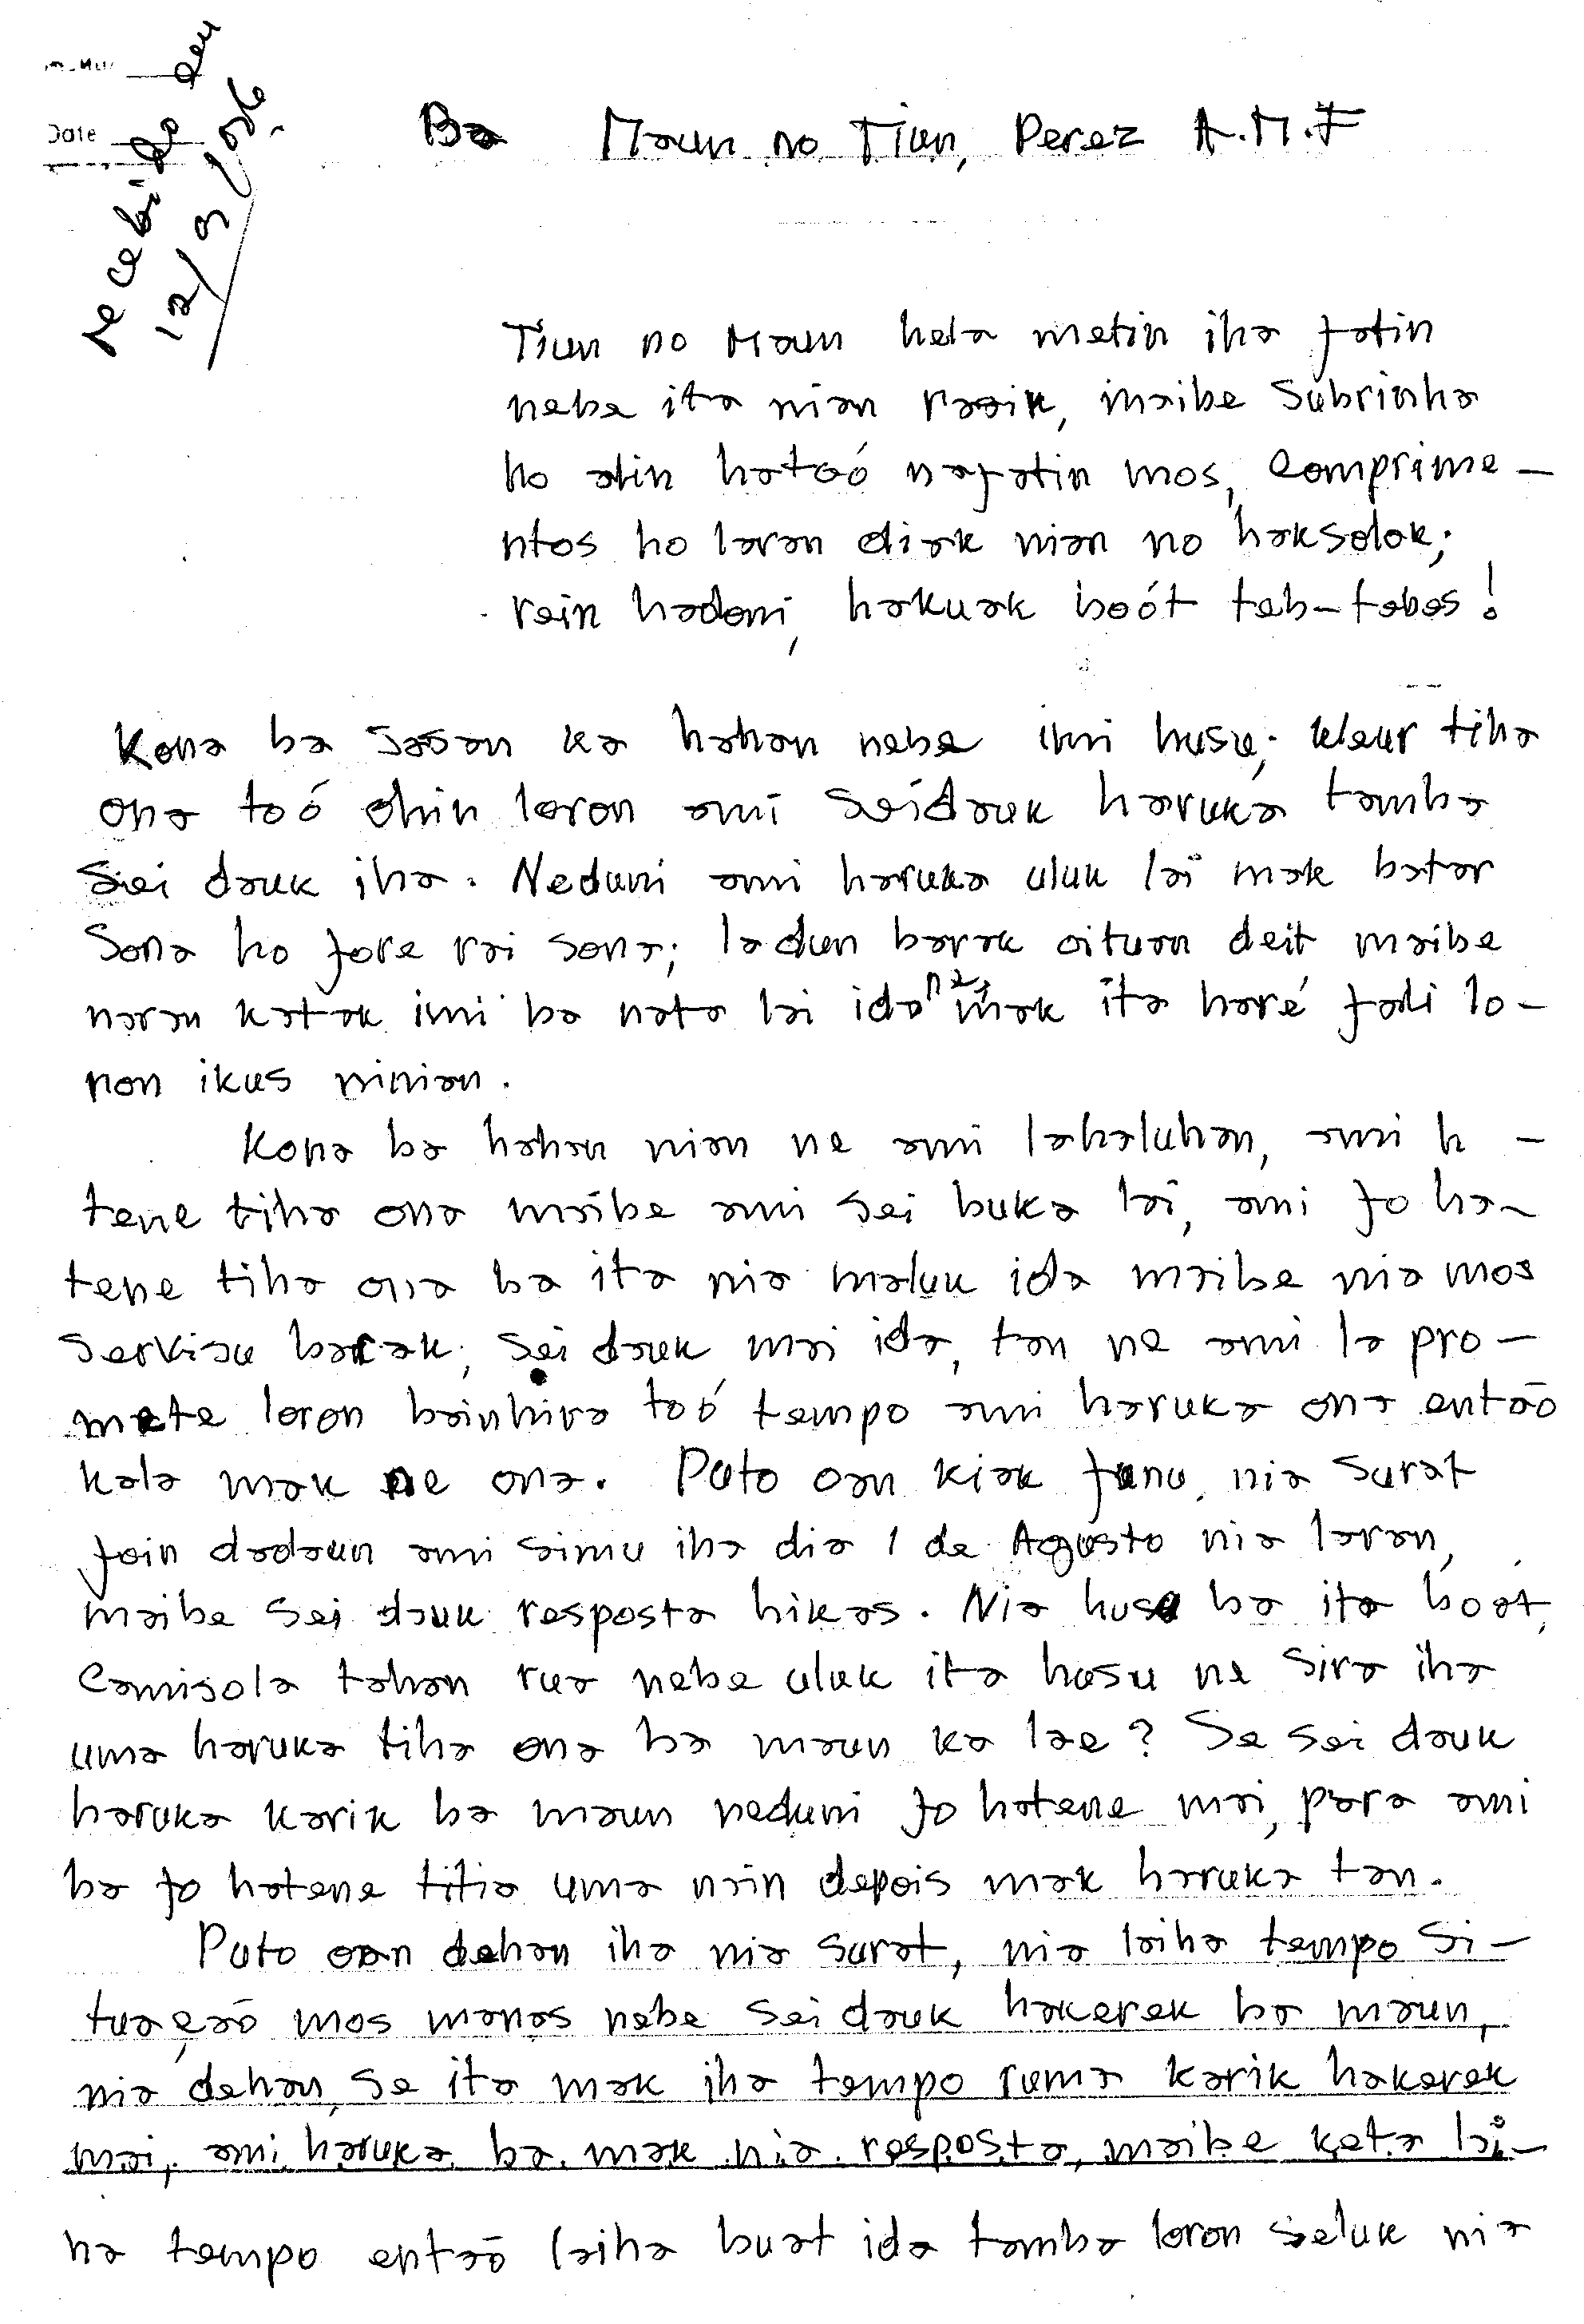 Date
recebido em
12/9/96
Ba Maun no Tiun, Perez A.M.F
Tiun no Maun hela metin iha fatin
nebe ita nian rasik, maibe Subrinha
ho alin hatoó nafatin mos, comprime-
ntos ho laran diak nian no haksolok;
rein hadomi, hakuak boót teb-tebes!
Kona ba sasan ka hahan nebe imi husu; kleur tiha
ona toó ohin loron ami seidauk haruka tamba
sei dauk iha. Neduni ami haruka uluk lai mak batar
sona ho fore rai sona; ladun barak oituan deit maibe
naran katak imi ba nata lai ida n2, mak ita haré fali lo-
ron ikus ninian.
Kona ba hahan nian ne ami lahaluhan, ami h -
tene tiha ona maibe ami sei buka lai, ami fo ha-
tene tiha ona ba ita nia maluk ida maibe nia mos
servisu barak, sei dauk mai ida, tan ne ami la pro-
mete loron bainhira toó tempo ami haruka ona então
kala mak ne ona. Puto oan kiak funu, nia surat
foin dadaun ami simu iha dia 1 de Agosto nia laran,
maibe sei dauk resposta hikas. Nia husu ba ita boót,
Camisola tahan rua nebe uluk ita husu ne sira iha
uma haruka tiha ona ba maun ka lae? Se sei dauk
haruka karik ba maun neduni fo hatene mai, para ami
ba fo hatene titia uma nain depois mak haruka tan.
Puto oan dehan iha nia surat, nia laiha tempo si-
tuação mos manas nebe sei dauk hakerek ba maun,
nia dehan, se ita mak iha tempo ruma karik hakerek
mai, ami haruka ba mak nia resposta, maibe kata lai-
ha tempo então laiha buat ida tamba loron seluk nia